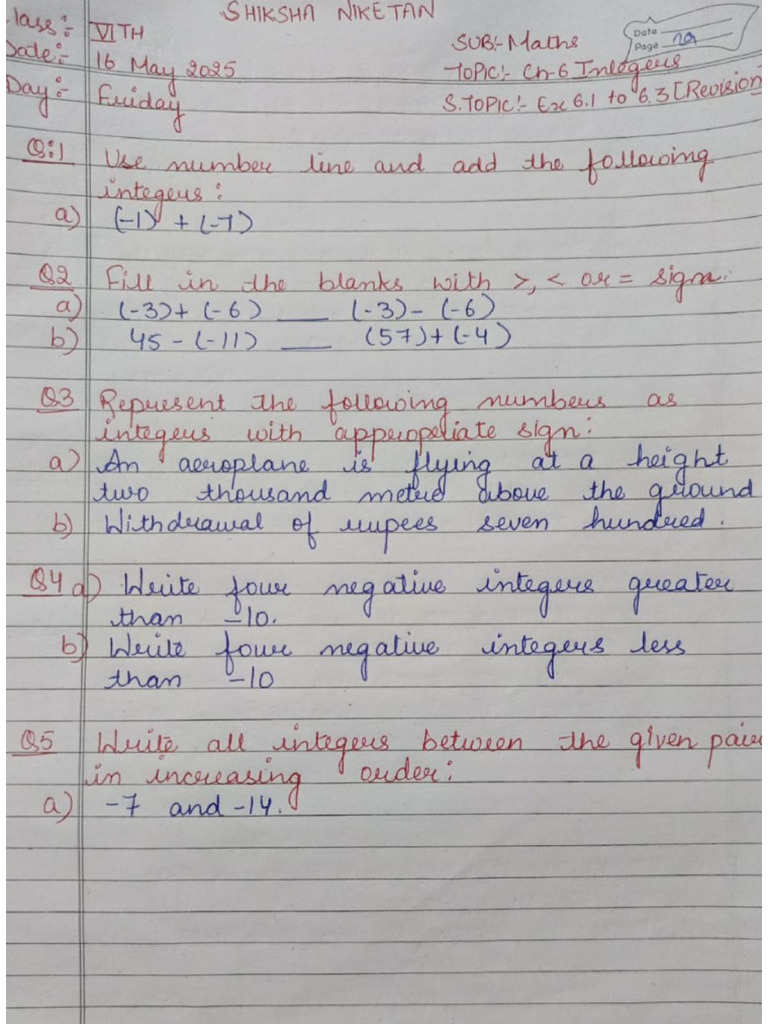 SHIKSHA NIKETAN
Date
Page
Class:- VITH
SUB:- Maths
Date:- 16 May 2025
TOPIC:- Ch-6 Integers
Day:- Friday
S.TOPIC:- Ex 6.1 to 6.3 [Revision]
Q:1 Use number line and add the following
integers:
a) (-1) + (-7)
Q2 Fill in the blanks with >, < or = sign.
a) (-3)+ (-6) ___ (-3)- (-6)
b) 45 - (-11) ___ (57)+(-4)
Q3 Represent the following numbers as
integers with appropriate sign:
a) An aeroplane is flying at a height
two thousand metre above the ground
b) Withdrawal of rupees seven hundred.
Q4 a) Write four negative integers greater
than -10.
b) Write four negative integers less
than -10
Q5 Write all integers between the given pair
in increasing order:
a) -7 and -14.